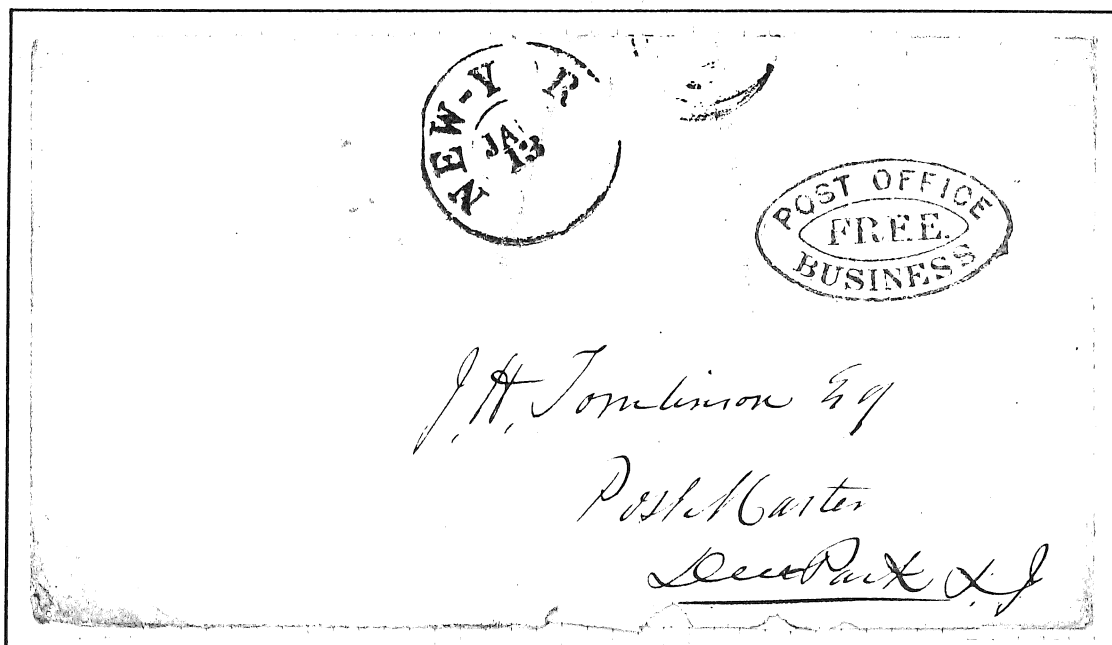 NEW-Y R
JA
13
POST OFFICE
FREE.
BUSINESS
J. H. Tomlinson Esq
Post Master
Deer Park L. I